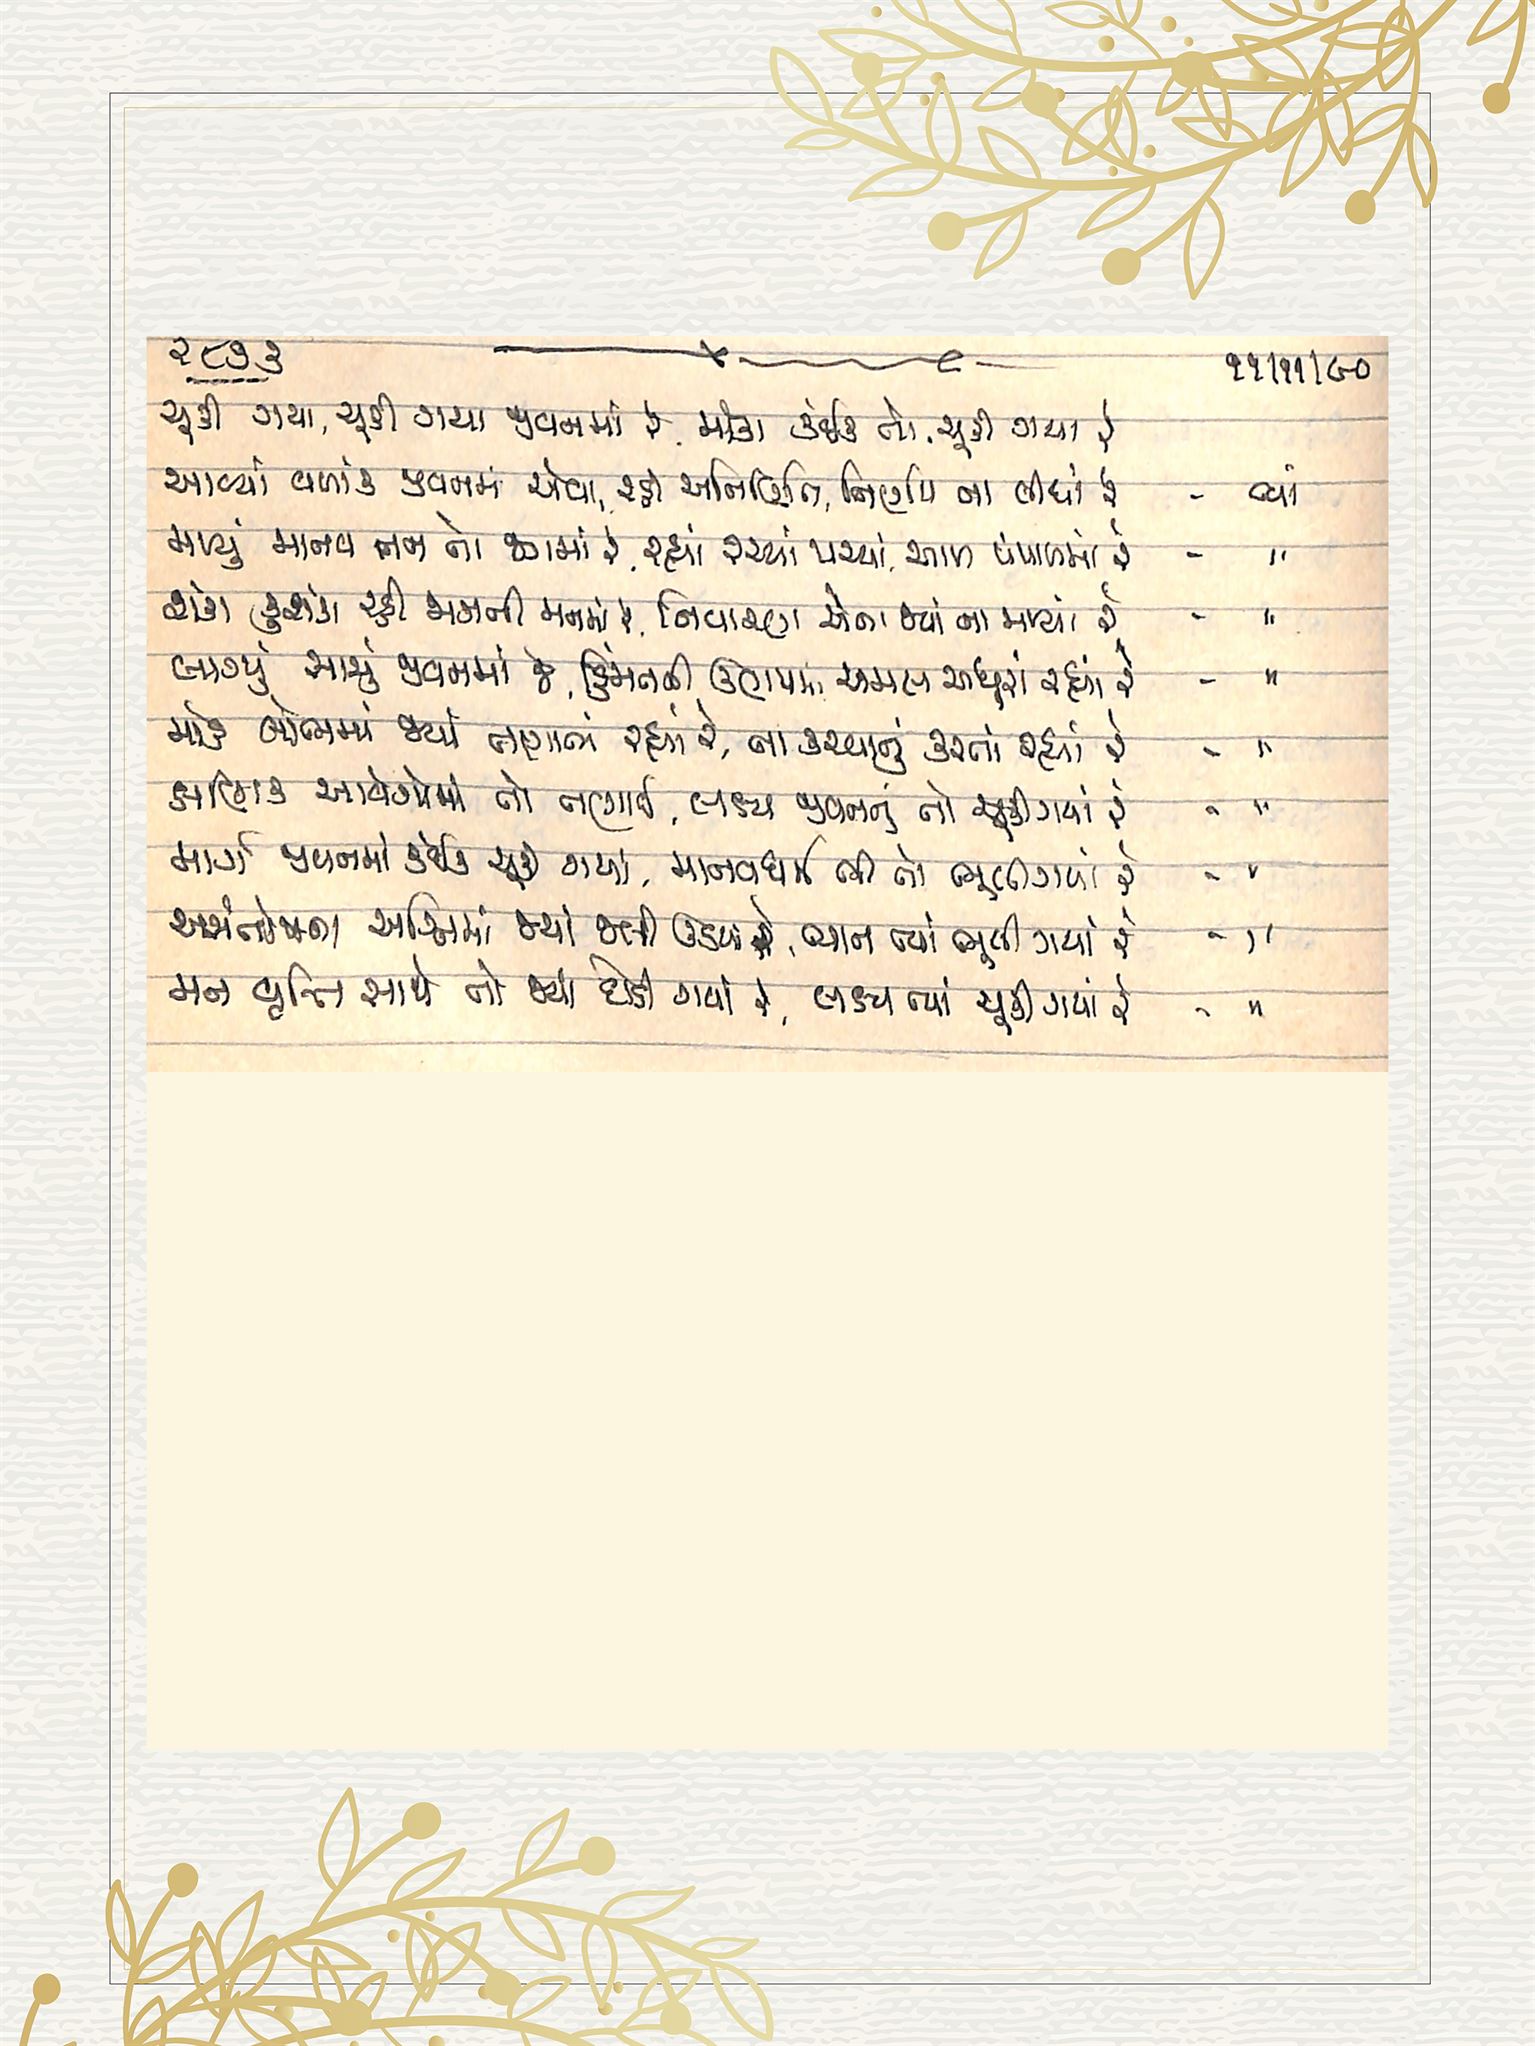 ૨૮૭૩ ૧૧/૧૧/૯૦
ચૂકી ગયા, ચૂકી ગયા જીવનમાં રે, મોકા કંઈક તો, ચૂકી ગયા રે
આવ્યાં વળાંક જીવનમાં એવા, રહી અનિશ્ચિત, નિર્ણય ના લીધાં રે - ચૂ
મળ્યું માનવ તન તો જગમાં રે, રહ્યાં રચ્યાં પચ્યાં, આળ પંપાળમાં રે - "
શંકા કુશંકા રહી મનની મનમાં રે, નિવારણ એના જ્યાં ના મળ્યાં રે - "
લાગ્યું સાચું જીવનમાં જે, હિંમતની ઉણપમાં અમલ અધૂરાં રહ્યાં રે - "
મોહ લોભમાં જ્યાં તણાતાં રહ્યાં રે, ના કરવાનું કરતાં રહ્યાં રે - "
ક્ષણિક આવેગોમાં તો તણાઈ, લક્ષ્ય જીવનનું તો ચૂકી ગયાં રે - "
માર્ગ જીવનમાં કંઈક ચૂકી ગયાં, માનવધર્મ બી તો ભૂલી ગયાં રે - "
અસંતોષના અગ્નિમાં જ્યાં જલી ઉઠયાં રે, ભાન ત્યાં ભૂલી ગયાં રે - "
મન વૃત્તિ સાથે તો જ્યાં દોડી ગયાં રે, લક્ષ્ય ત્યાં ચૂકી ગયાં રે - "